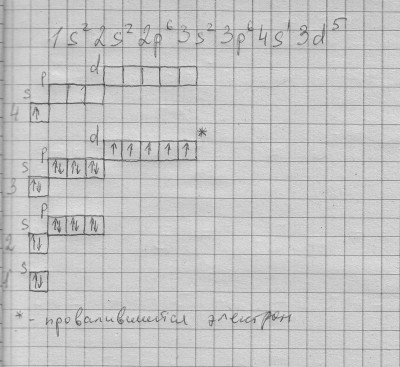 1s²2s²2p⁶3s²3p⁶4s¹3d⁵
d
p
s
4
d *
p
s
3
p
s
2
s
1
* - провалившийся электрон